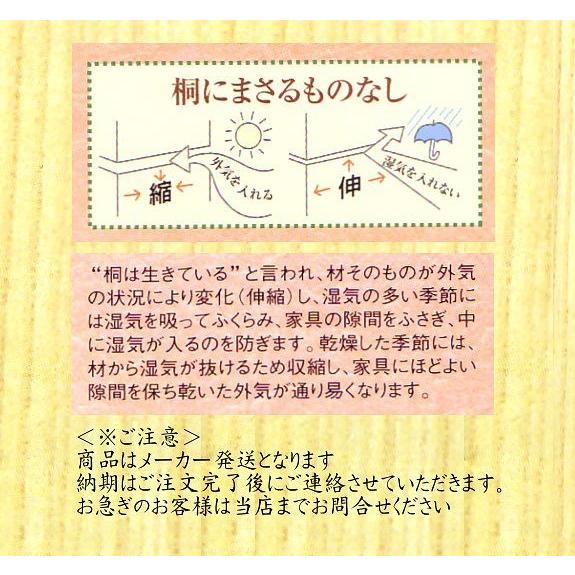 桐にまさるものなし
外気を入れる
縮
湿気を入れない
伸
“桐は生きている”と言われ、材そのものが外気
の状況により変化(伸縮)し、湿気の多い季節に
は湿気を吸ってふくらみ、家具の隙間をふさぎ、中
に湿気が入るのを防ぎます。乾燥した季節には、
材から湿気が抜けるため収縮し、家具にほどよい
隙間を保ち乾いた外気が通り易くなります。
＜※ご注意＞
商品はメーカー発送となります
納期はご注文完了後にご連絡させていただきます。
お急ぎのお客様は当店までお問合せください